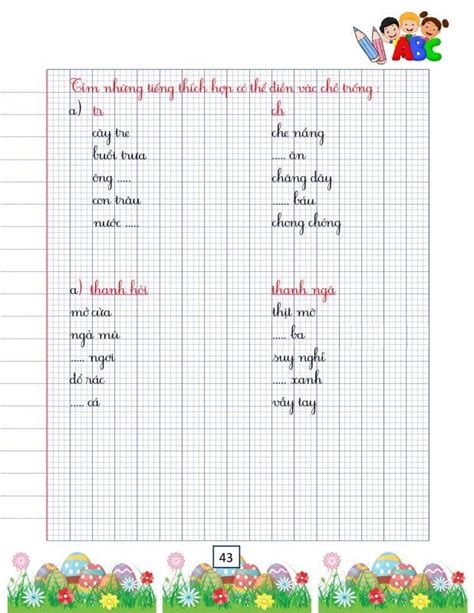 ABC
Tìm những tiếng thích hợp có thể điền vào chỗ trống :
a) tr ch
cây tre che nắng
buổi trưa ..... ăn
ông ..... chăng dây
con trâu ...... báu
nước ..... chong chóng
a) thanh hỏi thanh ngã
mở cửa thịt mỡ
ngả mũ ..... ba
..... ngơi suy nghĩ
đổ rác ..... xanh
..... cá vẫy tay
43